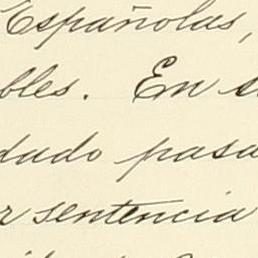 Españolas,
bles. En s
dado pasa
r sentencia